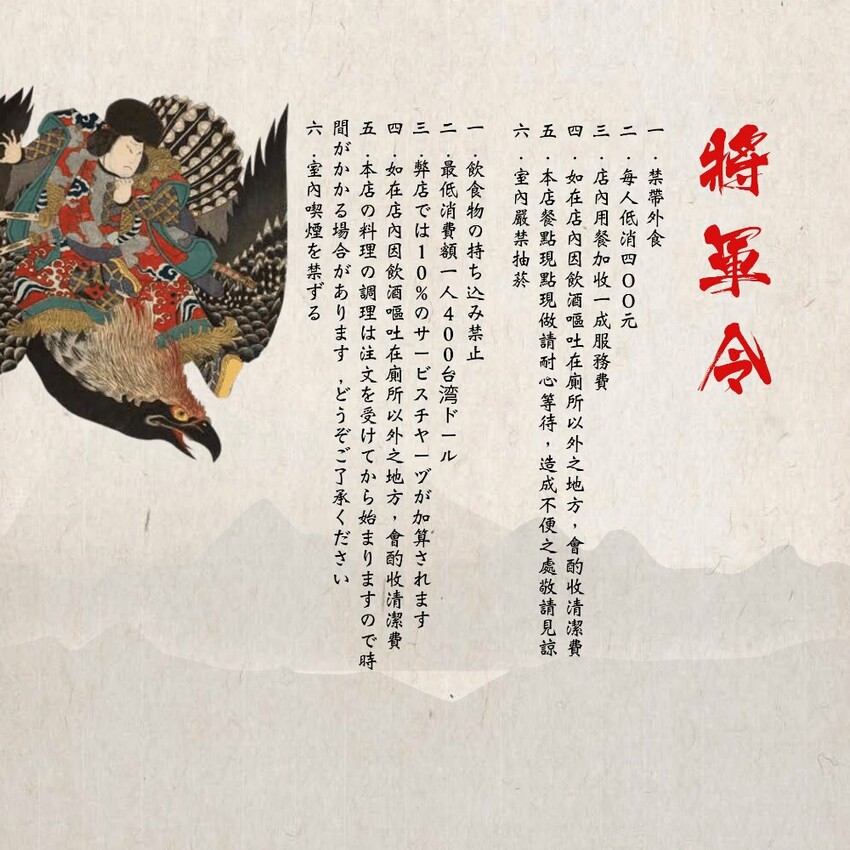 將軍令
一．禁帶外食
二．每人低消四００元
三．店內用餐加收一成服務費
四．如在店內因飲酒嘔吐在廁所以外之地方，會酌收清潔費
五．本店餐點現點現做請耐心等待，造成不便之處敬請見諒
六．室內嚴禁抽菸
一．飲食物の持ち込み禁止
二．最低消費額一人400台湾ドール
三．弊店では10%のサービスチヤーヅが加算されます
四．如在店內因飲酒嘔吐在廁所以外之地方，會酌收清潔費
五．本店の料理の調理は注文を受けてから始まりますので時
間がかかる場合があります，どうぞご了承ください
六．室內喫煙を禁ずる